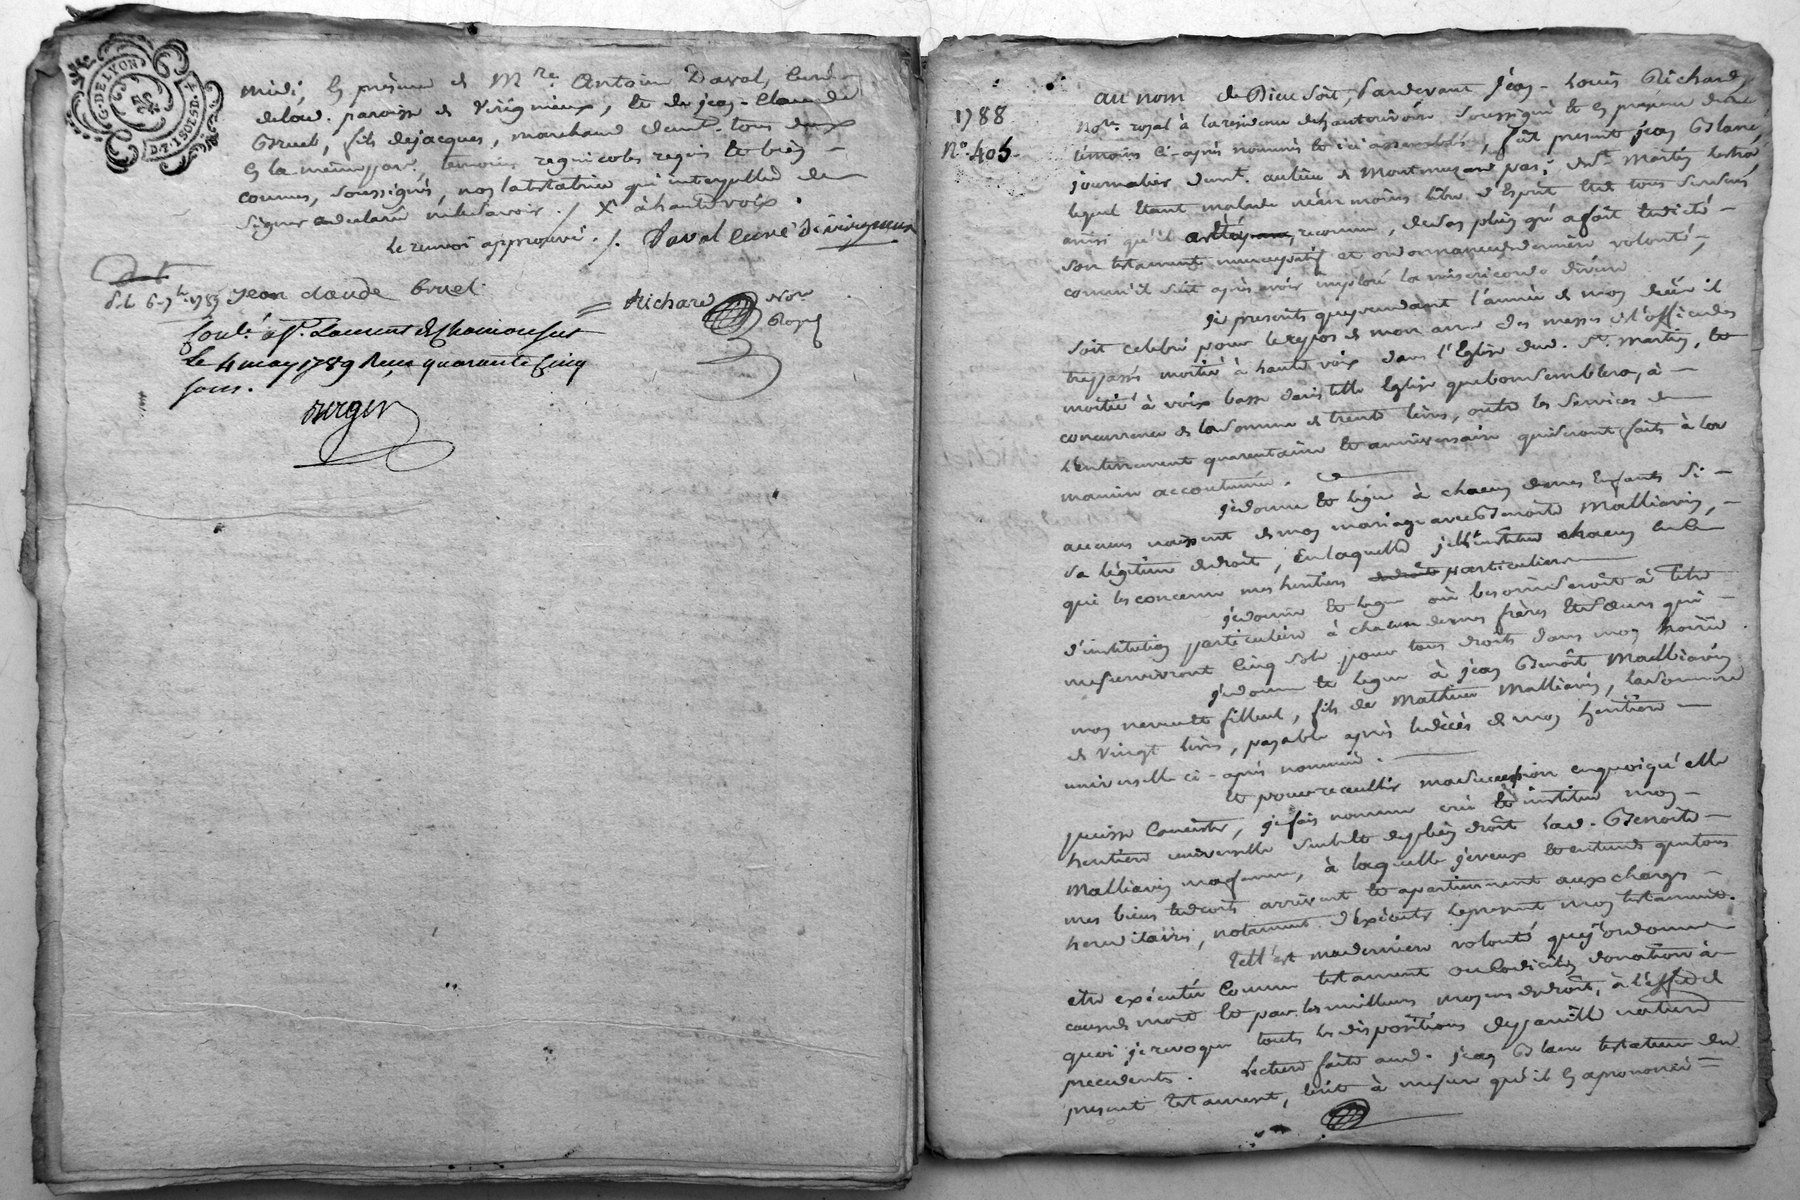 G. DE LYON
D. P. 1 SOL 8 D. 4
midi, en présence de Mre Antoine Daval, curé
de lad. paroisse de Virigneux, et de jean-Claude
Bruel, fils de jacques, marchand demt. tous deux
en la même par. témoins regnicoles requis et bien
connus, soussignés, non la testatrice qui interpellée de
signer a declaré ne le savoir ./. X à haute voix
le renvoi approuvé ./. Daval curé de virigneux
jean claude bruel
Richard Nore
Royal
Conlé. a St. Laurent de Chamousset
Le 4 may 1789 Reçu quarante Cinq
sous.
Berger
1788
No. 405.
au nom de Dieu soit, Pardevant Jean-Louis Richard
Nore. royal à la residence de hauterivoire soussigné et en présence des
témoins ci-après nommés et ici assemblés, fût présent jean Blanc,
journalier demt. au lieu de par. de St. Martin Lestra
lequel étant malade néanmoins libre d'Esprit et de tous ses sens
ainsi qu'il reconnu, de son plein gré a fait et dicté
son testament nuncupatif et ordonnance de derniere volonté,
comm'il suit après avoir imploré la misericorde divine
je prescrits que pendant l'année de mon décès il
soit celebré pour le repos de mon ame des messes de l'office des
trepassés moitié à haute voix dans l'Eglise dud. St. Martin, et
moitié à voix basse dans telle Eglise que bon semblera, à
concurrence de la somme de trente livres, outre les services de
l'enterrement quarantaine et anniversaire qui seront faits à la
maniere accoutumée.
je donne et legue à chacun de mes Enfants si
aucuns naissent de mon mariage avec Benoite Malliavin,
sa légitime de droit, en laquelle je les institue chacun en ce
qui les concerne mes heritiers particuliers
je donne et legue où besoin seroit à titre
d'institution particuliere à chacun de mes frères et sœurs qui
me survivront cinq sols pour tous droits dans mon hoirie
je donne et legue à jean Benoît Malliavin
mon neveu et filleul, fils de Mathieu Malliavin, la somme
de vingt livres, payable après le décès de mon heritiere
universelle ci-après nommée.
et pour recueillir ma succession en quoiqu'elle
puisse consister, je fais nomme crée et institue mon
heritiere universelle seule et de plein droit lad. Benoite
Malliavin ma femme, à laquelle je veux et entends que tous
mes biens et droits arrivent et apartiennent aux charges
hereditaires, notament d'exécuter le present mon testament.
Tell'est ma derniere volonté que j'ordonne
etre exécutée comme testament ou codicile, donation à
cause de mort et par les meilleurs moyens de droit, à l'effet de
quoi je revoque toutes les dispositions de pareille nature
precedentes. Lecture faite aud. jean Blanc testateur du
present testament, écrit à mesure qu'il l'a prononcé